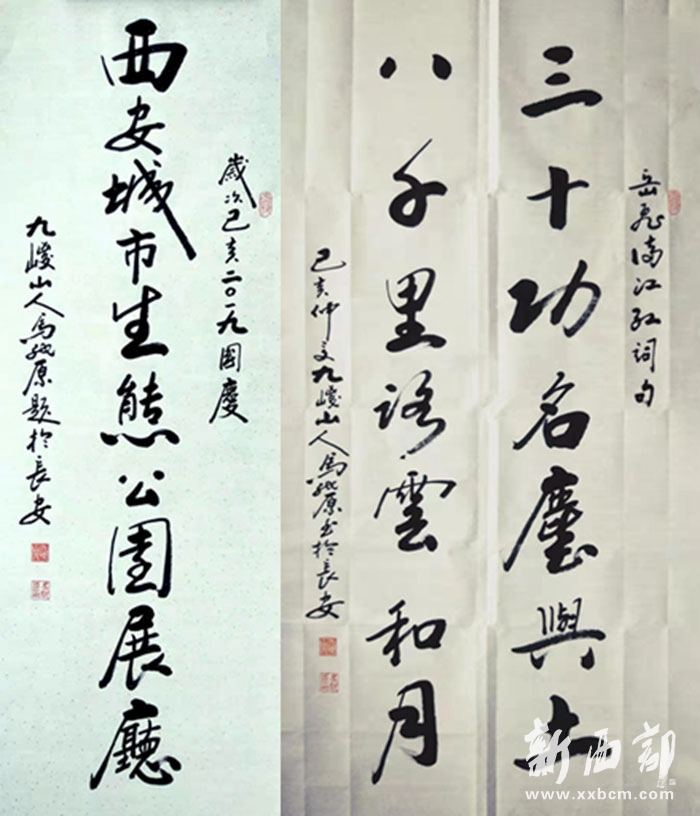 岳飛滿江紅詞句
三十功名塵與土
八千里路雲和月
己亥仲夏九嵕山人馬原書於長安
歲次己亥二〇一九國慶
西安城市生態公園展廳
九嵕山人馬原題於長安
新西部
www.xxbcm.com